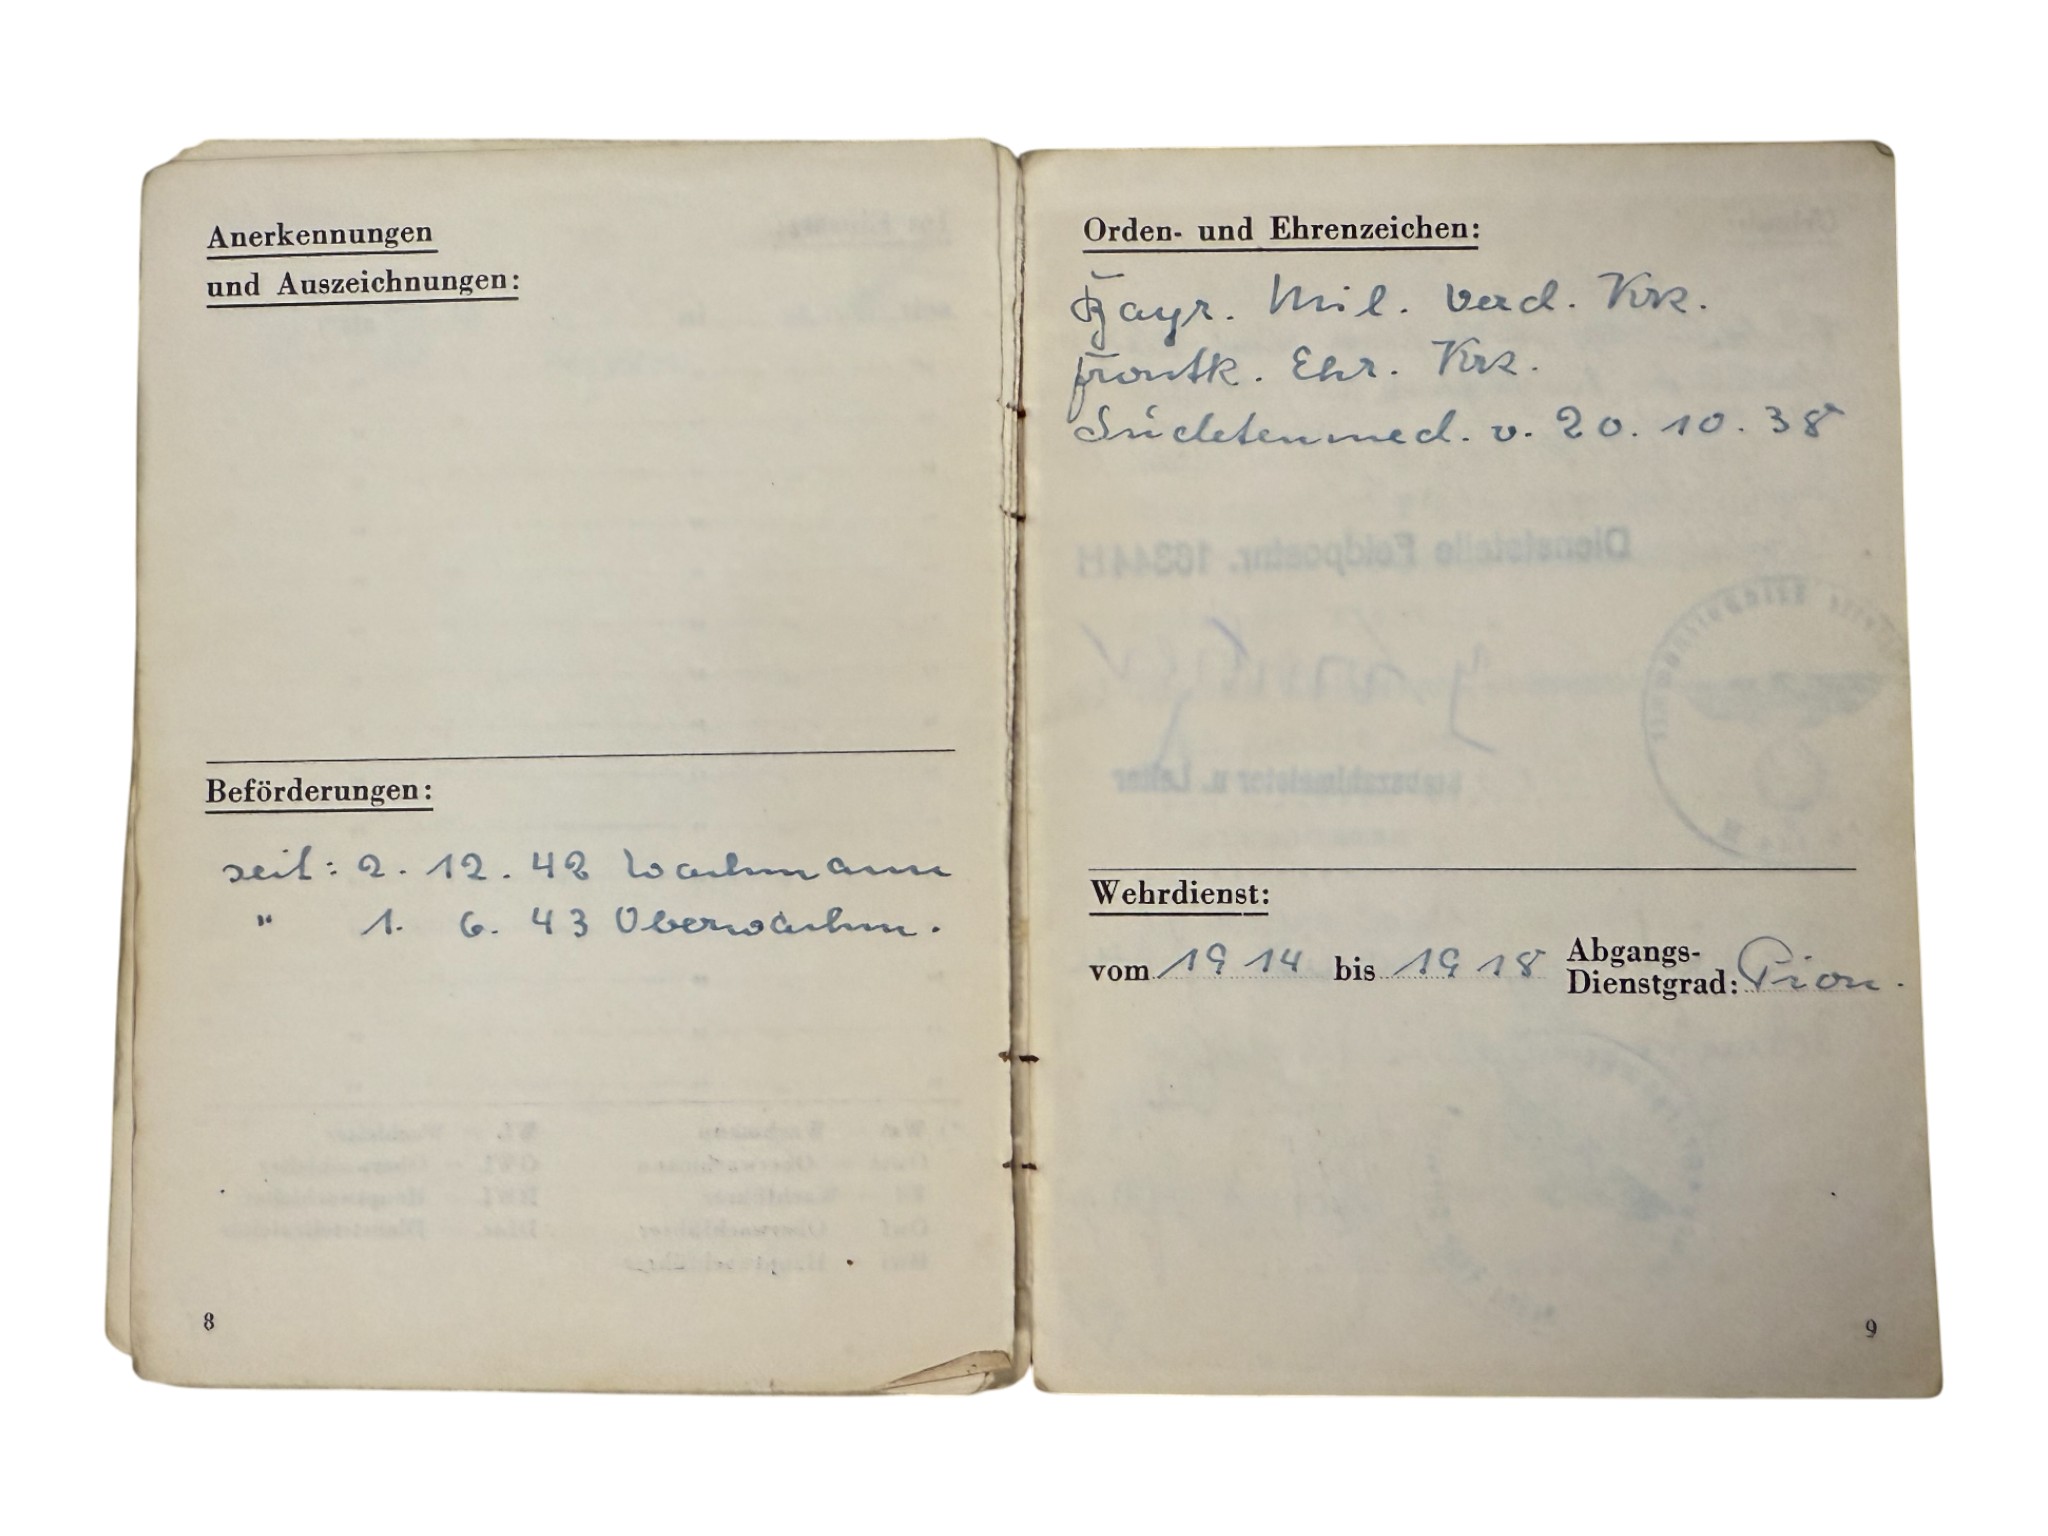 Anerkennungen
und Auszeichnungen:
Beförderungen:
seit: 2. 12. 42 Wachmann
" 1. 6. 43 Oberwachm.
8
Orden- und Ehrenzeichen:
Bayr. Mil. Verd. Krz.
Frontk. Ehr. Krz.
Sudetenmed. v. 20. 10. 38
Dienststelle Feldpostnr. 16344H
Stabszahlmeister u. Leiter
Wehrdienst:
vom 1914 bis 1918 Abgangs-
Dienstgrad: Pion.
9